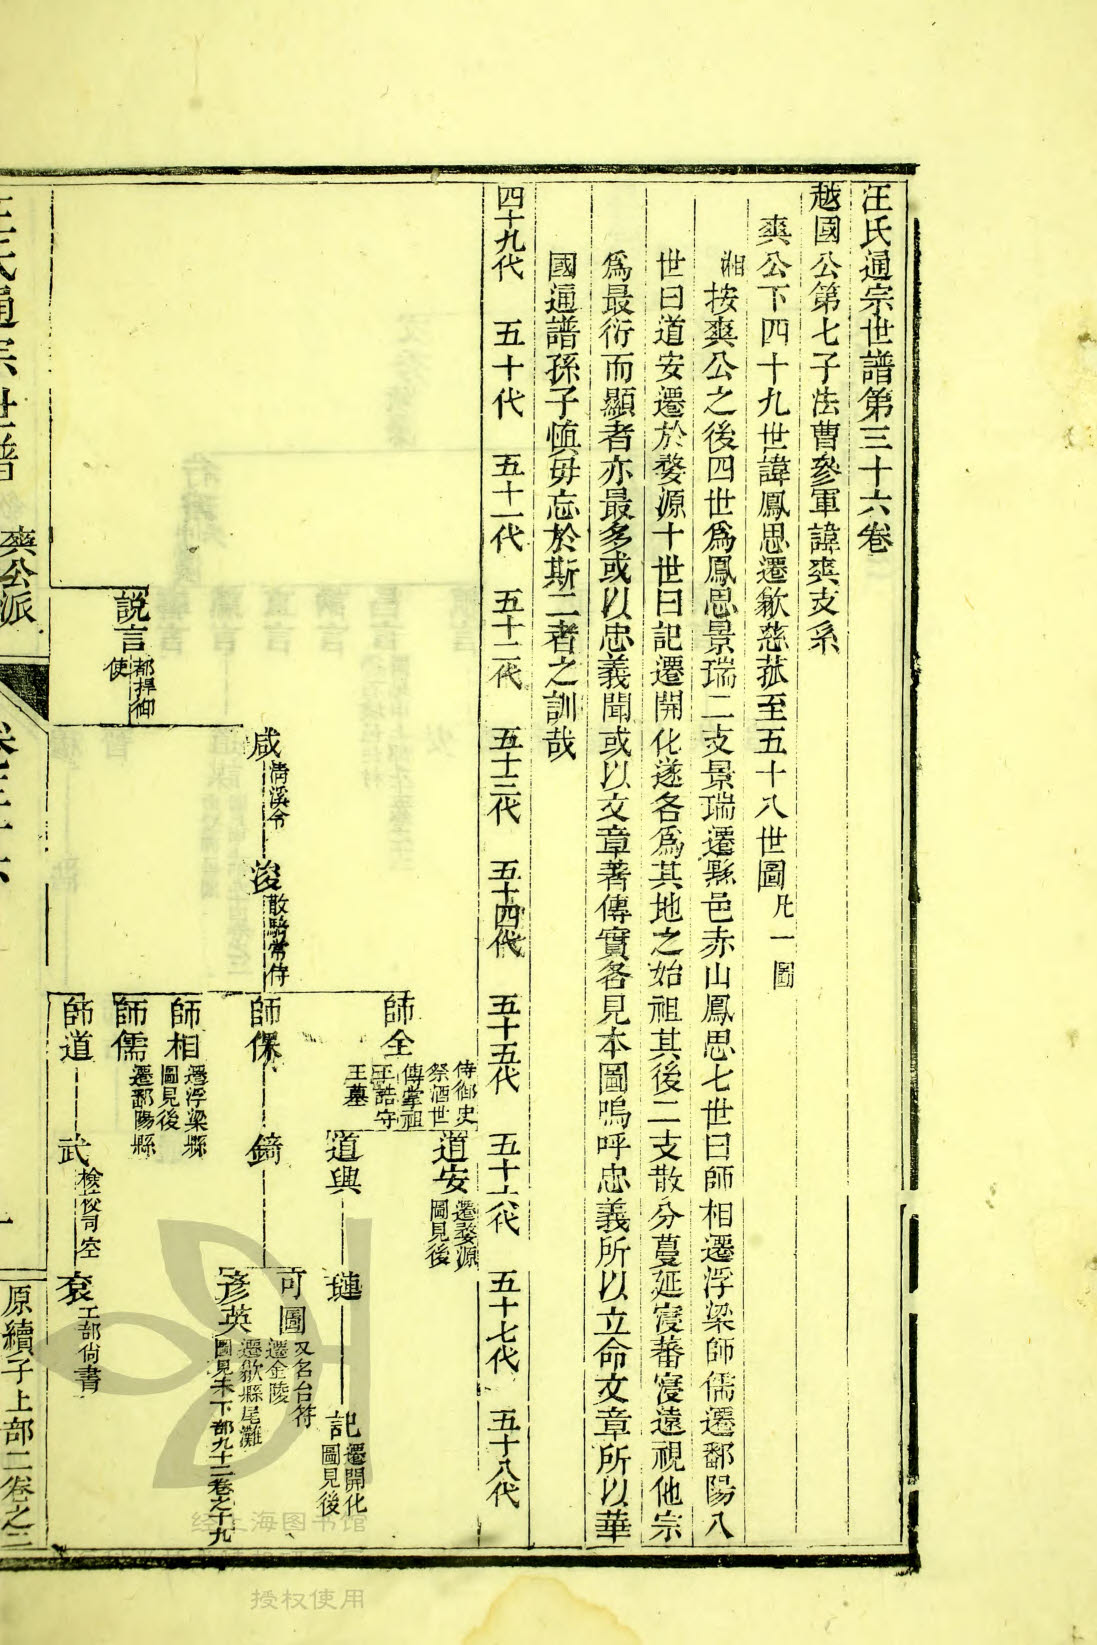 汪氏通宗世譜第三十六卷
越國公第七子法曹參軍諱爽支系
爽公下四十九世諱鳳思遷歙慈菰至五十八世圖凡一圖
湘按爽公之後四世爲鳳思景瑞二支景瑞遷縣邑赤山鳳思七世曰師相遷浮梁師儒遷鄱陽八
世曰道安遷於婺源十世曰記遷開化遂各爲其地之始祖其後二支散分蔓延寖蕃寖遠視他宗
爲最衍而顯者亦最多或以忠義聞或以文章著傳實各見本圖嗚呼忠義所以立命文章所以華
國通譜孫子愼毋忘於斯二者之訓哉
四十九代 五十代 五十一代 五十二代 五十三代 五十四代 五十五代 五十六代 五十七代 五十八代
道安 遷婺源
圖見後
師全 侍御史
祭酒世
傳掌祖
王誥守
王墓
道興 璉 記 遷開化
圖見後
可圖 又名台符
遷金陵
咸 清溪令 浚 散騎常侍 師保 鏑 彦英 遷歙縣尾灘
圖見未下部九十二卷之十九
師相 遷浮梁縣
圖見後
說言 都押御
使 師儒 遷鄱陽縣
師道 武 檢校司空 衮 工部尙書
汪氏通宗世譜 爽公派 卷三十六 一 原續子上部二卷之三
经上海图书馆
授权使用